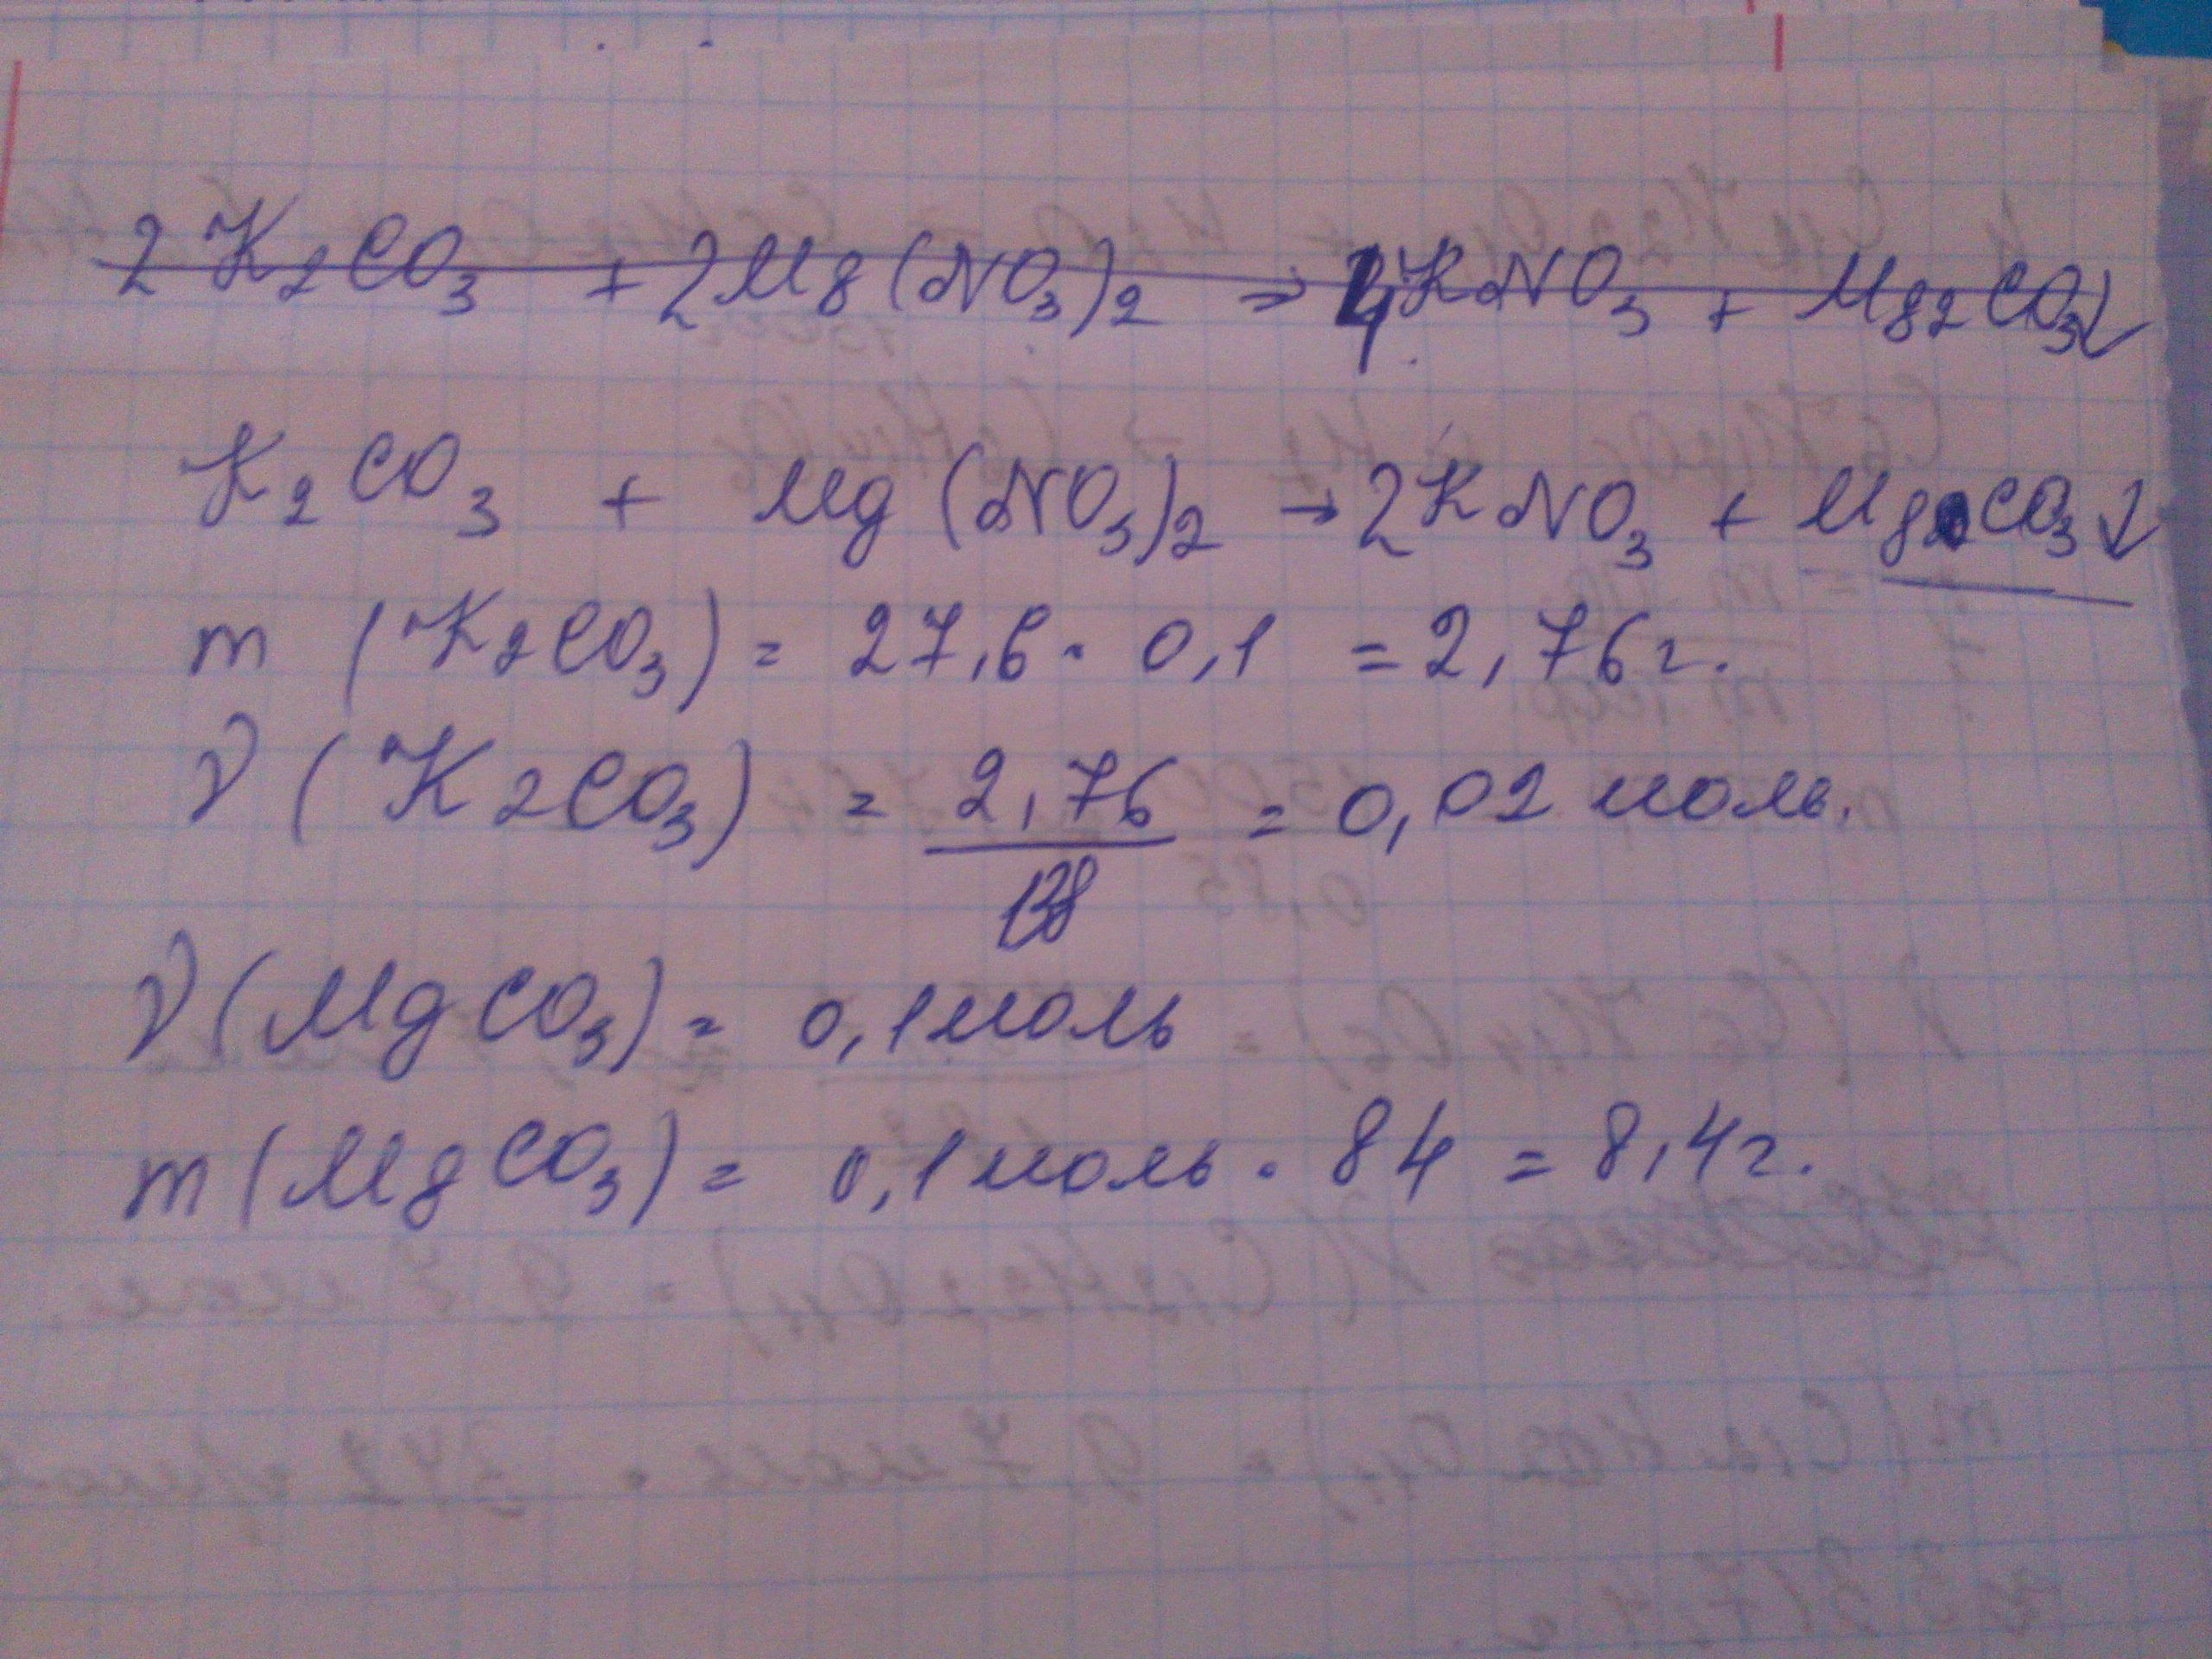 2K₂CO₃ + 2Mg(NO₃)₂ → 4KNO₃ + Mg₂CO₃↓
K₂CO₃ + Mg(NO₃)₂ → 2KNO₃ + MgCO₃↓
m(K₂CO₃) = 27,6 · 0,1 = 2,76 г.
ν(K₂CO₃) = 2,76 / 138 = 0,02 моль.
ν(MgCO₃) = 0,1 моль
m(MgCO₃) = 0,1 моль · 84 = 8,4 г.